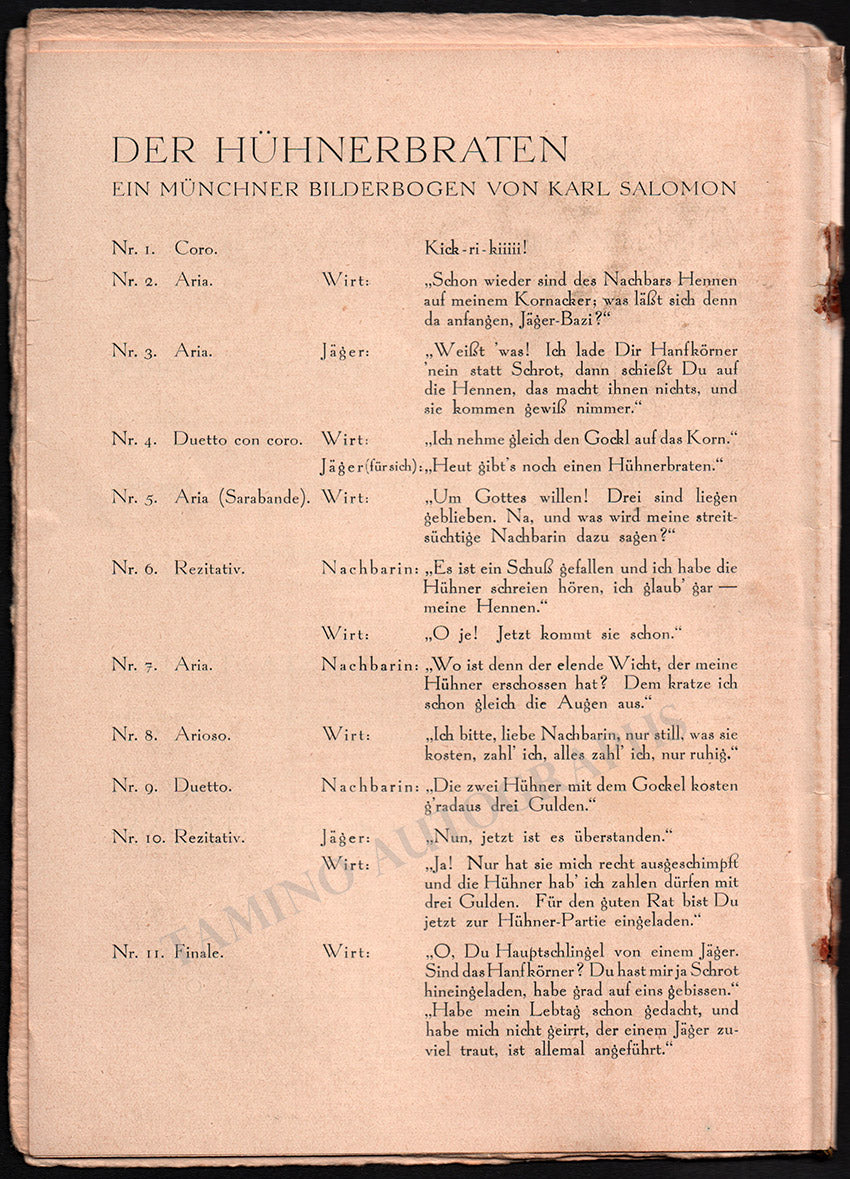 DER HÜHNERBRATEN
EIN MÜNCHNER BILDERBOGEN VON KARL SALOMON
Nr. 1. Coro. Kick-ri-kiiiii!
Nr. 2. Aria. Wirt: „Schon wieder sind des Nachbars Hennen
auf meinem Kornacker; was läßt sich denn
da anfangen, Jäger-Bazi?“
Nr. 3. Aria. Jäger: „Weißt 'was! Ich lade Dir Hanfkörner
'nein statt Schrot, dann schießt Du auf
die Hennen, das macht ihnen nichts, und
sie kommen gewiß nimmer.“
Nr. 4. Duetto con coro. Wirt: „Ich nehme gleich den Gockl auf das Korn.“
Jäger (für sich): „Heut gibt's noch einen Hühnerbraten.“
Nr. 5. Aria (Sarabande). Wirt: „Um Gottes willen! Drei sind liegen
geblieben. Na, und was wird meine streit-
süchtige Nachbarin dazu sagen?“
Nr. 6. Rezitativ. Nachbarin: „Es ist ein Schuß gefallen und ich habe die
Hühner schreien hören, ich glaub' gar —
meine Hennen.“
Wirt: „O je! Jetzt kommt sie schon.“
Nr. 7. Aria. Nachbarin: „Wo ist denn der elende Wicht, der meine
Hühner erschossen hat? Dem kratze ich
schon gleich die Augen aus.“
Nr. 8. Arioso. Wirt: „Ich bitte, liebe Nachbarin, nur still, was sie
kosten, zahl' ich, alles zahl' ich, nur ruhig.“
Nr. 9. Duetto. Nachbarin: „Die zwei Hühner mit dem Gockel kosten
g'radaus drei Gulden.“
Nr. 10. Rezitativ. Jäger: „Nun, jetzt ist es überstanden.“
Wirt: „Ja! Nur hat sie mich recht ausgeschimpft
und die Hühner hab' ich zahlen dürfen mit
drei Gulden. Für den guten Rat bist Du
jetzt zur Hühner-Partie eingeladen.“
Nr. 11. Finale. Wirt: „O, Du Hauptschlingel von einem Jäger.
Sind das Hanfkörner? Du hast mir ja Schrot
hineingeladen, habe grad auf eins gebissen.“
„Habe mein Lebtag schon gedacht, und
habe mich nicht geirrt, der einem Jäger zu-
viel traut, ist allemal angeführt.“
TAMINO AUTOGRAPHS